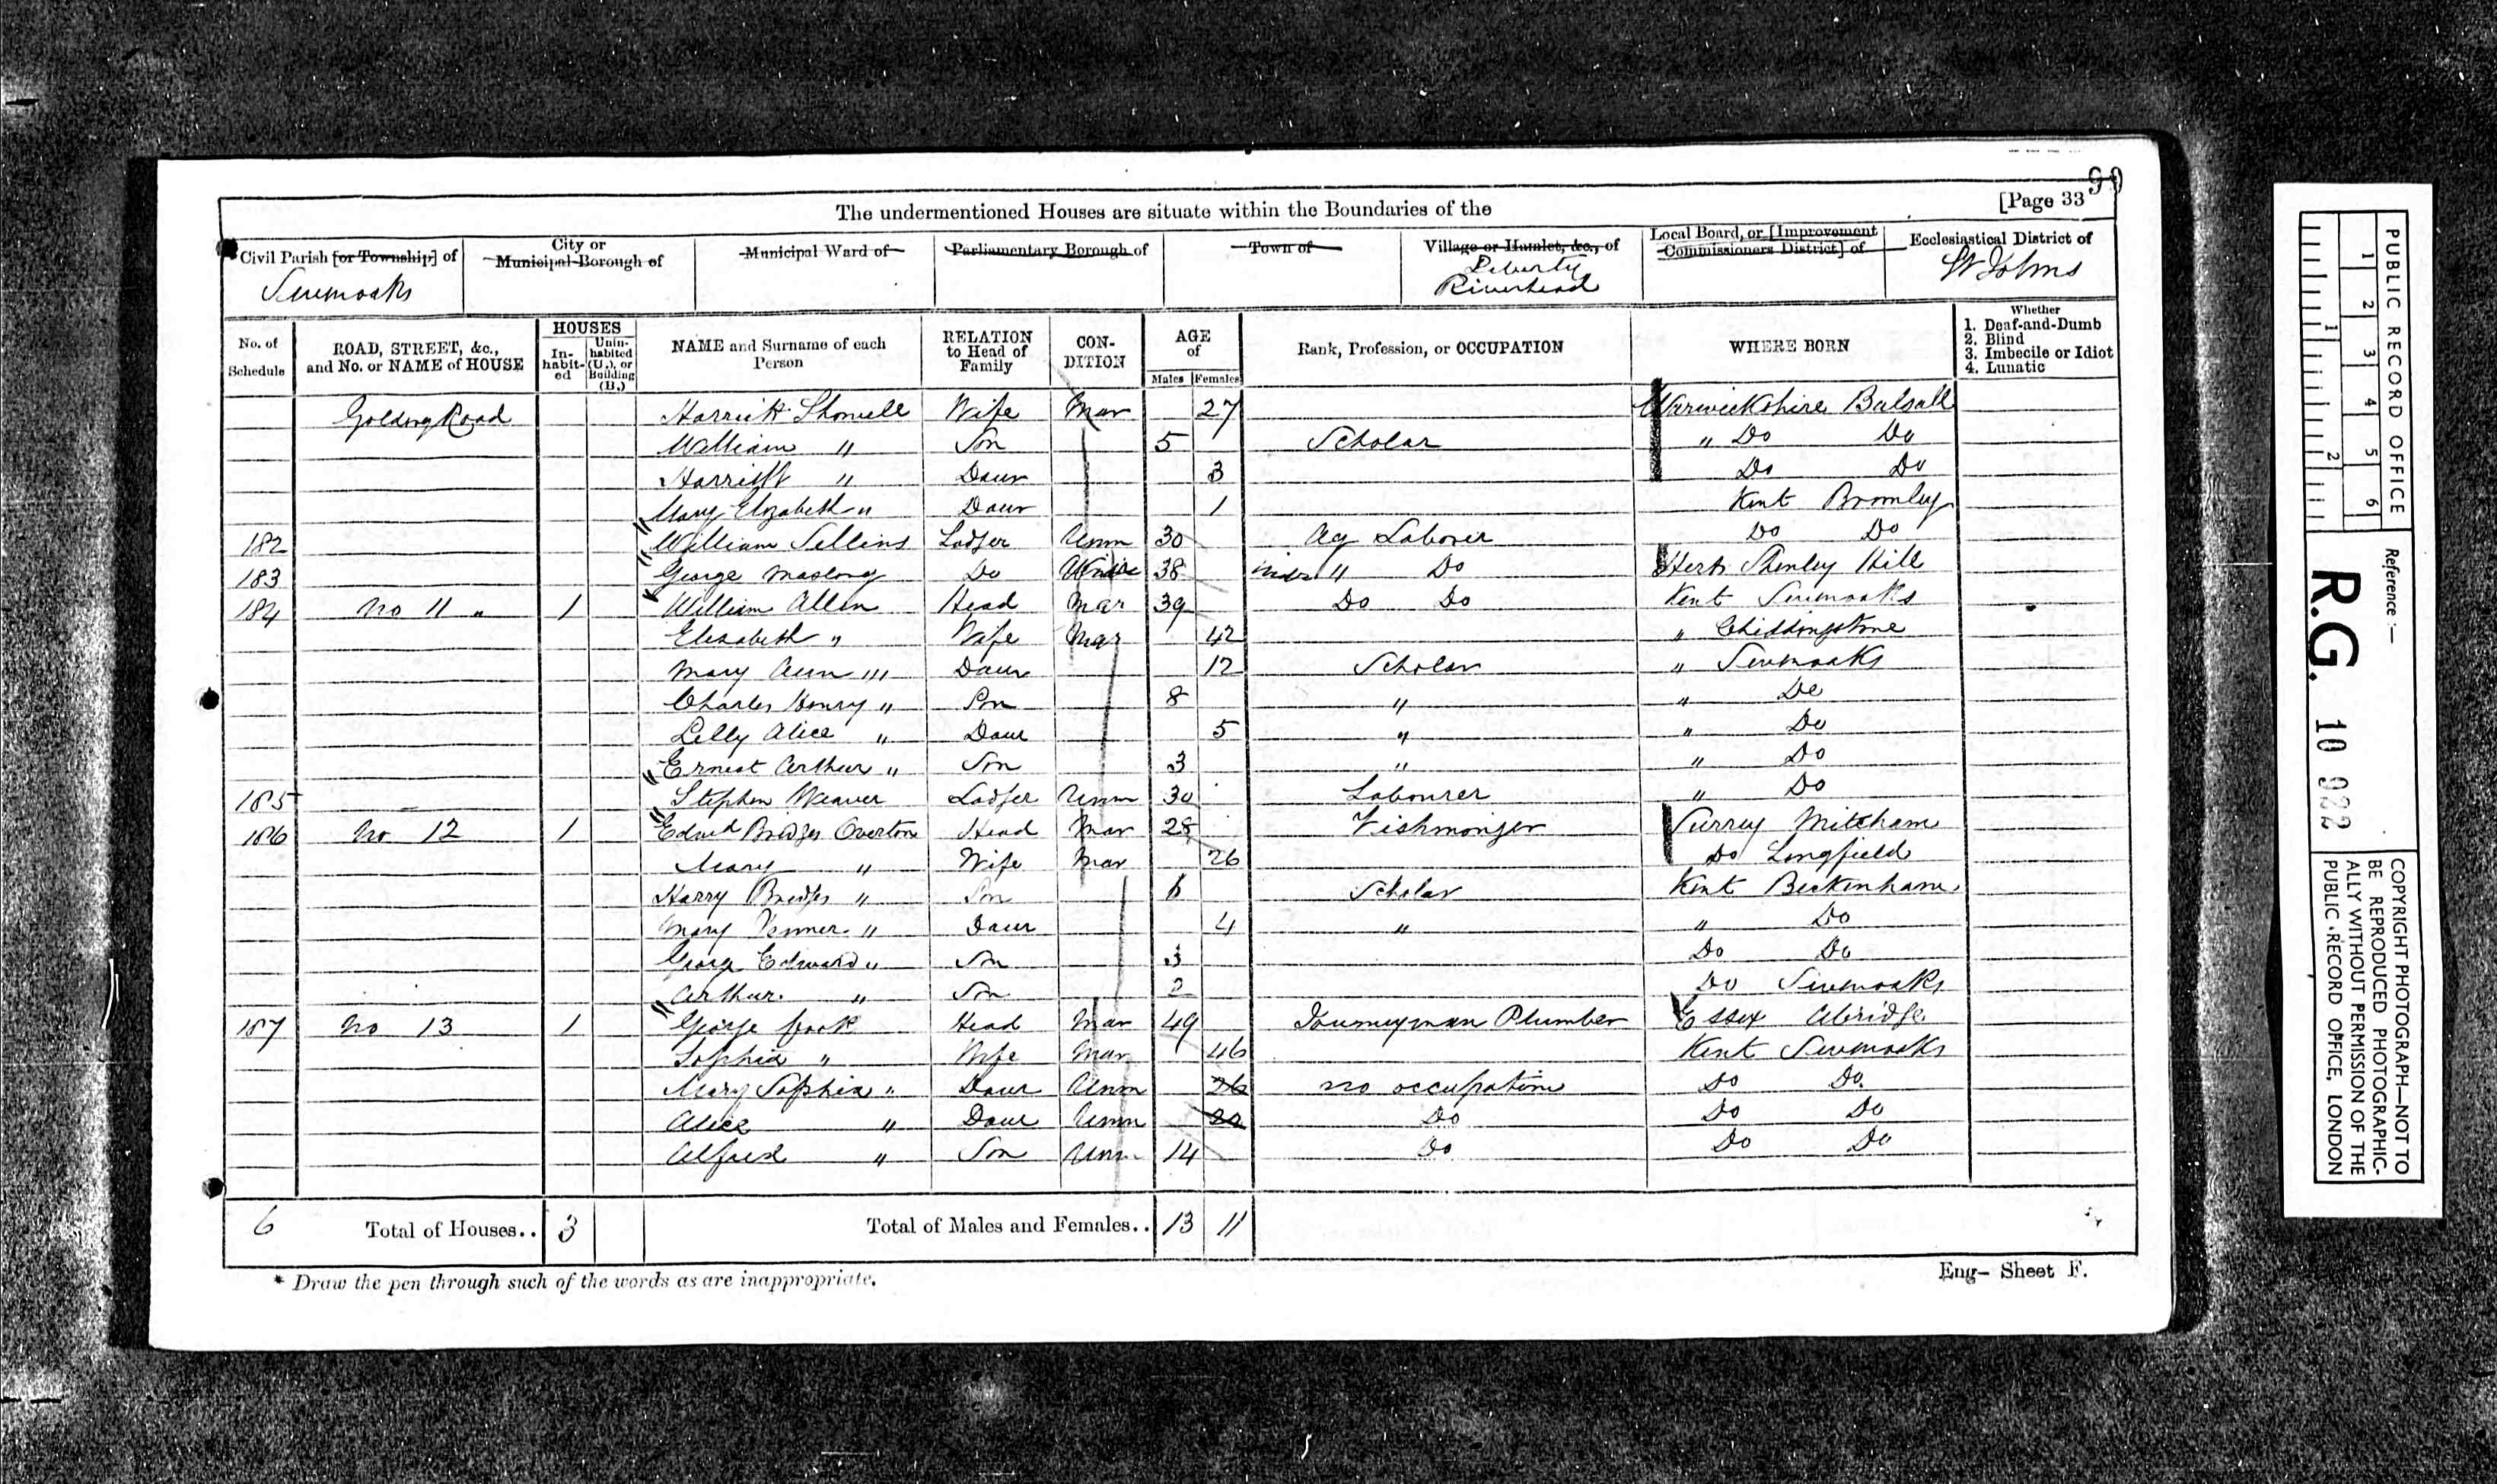 90
[Page 33
The undermentioned Houses are situate within the Boundaries of the
Civil Parish [or Township] of Sevenoaks
City or Municipal Borough of
Municipal Ward of
Parliamentary Borough of
Town of
Village or Hamlet, &c., of Liberty Riverhead
Local Board, or [Improvement Commissioners District] of
Ecclesiastical District of St Johns
No. of Schedule
ROAD, STREET, &c., and No. or NAME of HOUSE
HOUSES
In-habit-ed
Unin-habited (U.), or Building (B.)
NAME and Surname of each Person
RELATION to Head of Family
CON-DITION
AGE of
Males Females
Rank, Profession, or OCCUPATION
WHERE BORN
Whether
1. Deaf-and-Dumb
2. Blind
3. Imbecile or Idiot
4. Lunatic
Golding Road Harriett Showell Wife Mar 27 Warwickshire Balsall
William " Son 5 Scholar " Do Do
Harriett " Daur 3 Do Do
Mary Elizabeth " Daur 1 Kent Bromley
182 William Sellins Lodger Unm 30 Ag Laborer Do Do
183 George Do 38 " Do Herts Shenley Hill
184 No 11 " 1 William Allen Head Mar 39 Do Do Kent Sevenoaks
Elizabeth " Wife Mar 42 " Chiddingstone
Mary Ann " Daur 12 Scholar " Sevenoaks
Charles Henry " Son 8 " " Do
Lilly Alice " Daur 5 " " Do
Ernest Arthur " Son 3 " " Do
185 Stephen Weaver Lodger Unm 30 Labourer " Do
186 No 12 1 Edwd Bridges Overton Head Mar 28 Fishmonger Surrey Mitcham
Mary " Wife Mar 26 Do Lingfield
Harry Bridges " Son 6 Scholar Kent Beckenham
Mary Venner " Daur 4 " " Do
George Edward " Son 3 Do Do
Arthur " Son 2 Do Sevenoaks
187 No 13 1 George Head Mar 49 Journeyman Plumber Essex Abridge
Sophia " Wife Mar 46 Kent Sevenoaks
Mary Sophia " Daur Unm 26 no occupation Do Do
Alice " Daur Unm Do Do Do
Alfred " Son Unm 14 Do Do Do
6 Total of Houses.. 3 Total of Males and Females.. 13 11
* Draw the pen through such of the words as are inappropriate.
Eng- Sheet F.
PUBLIC RECORD OFFICE
1 2 3 4 5 6
1 2
Reference :-
R.G. 10 922
COPYRIGHT PHOTOGRAPH—NOT TO
BE REPRODUCED PHOTOGRAPHIC-
ALLY WITHOUT PERMISSION OF THE
PUBLIC RECORD OFFICE, LONDON